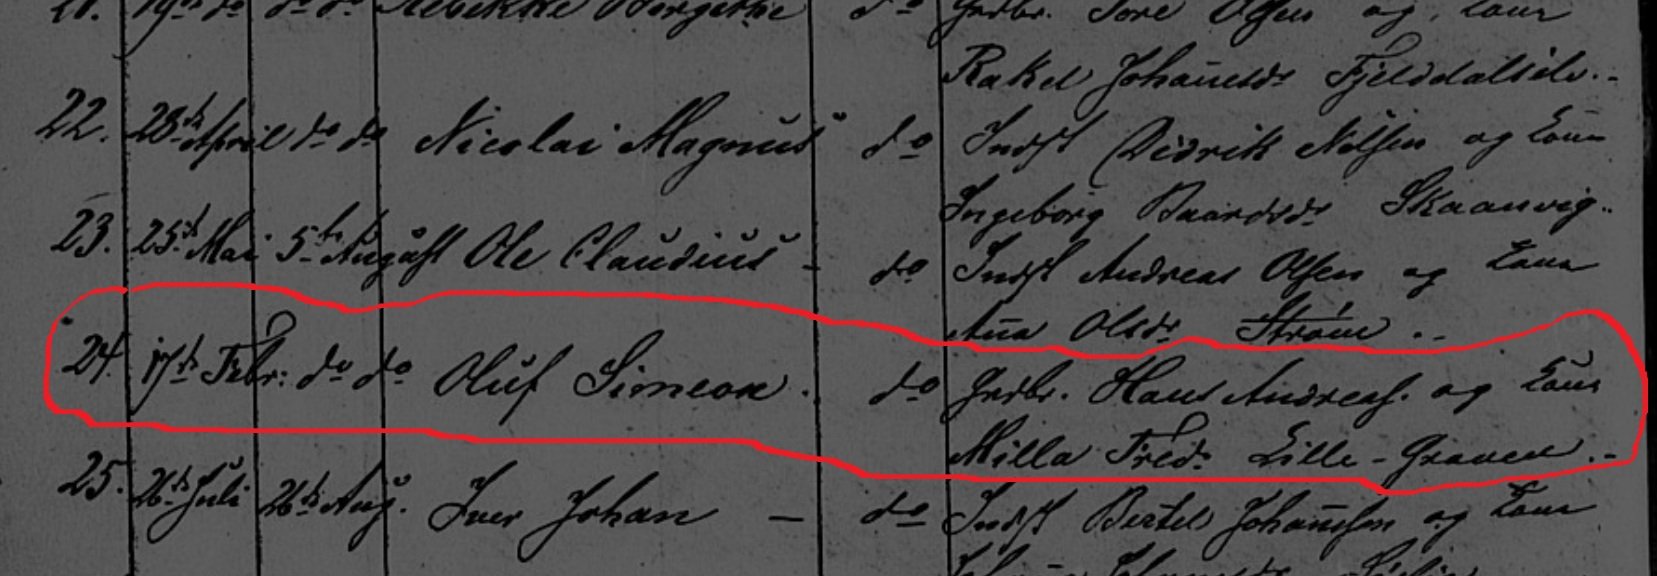 Rebekke Bergethe do Grdbr. Tore Olsen og Kone
Rakel Johannesdr Fjelddalslie.-
22. 28de April do do Nicolai Magnus do Indst Didrik Nilsen og Kone
Ingeborg Baardsdr Skaanvig..
23. 25de Mai 5te August Ole Claudius - do Indst Andreas Olsen og Kone
Ana Olsdr Strøm ..
24. 17de Febr: do do Oluf Simeon . do Grdbr. Hans Andreas. og Kone
Milla Fredr Lille-Graven .-
25. 26de Juli 26de Aug. Iver Johan - do Indst Bertel Johannesen og Kone